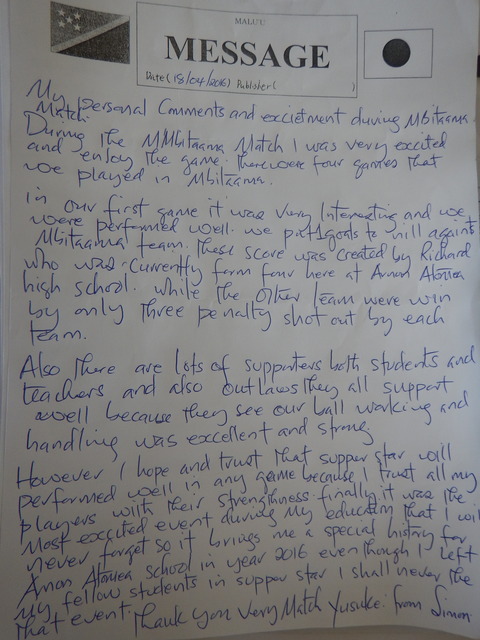 MALU'U
MESSAGE
Date (18/04/2016) Publisher ( )
My personal Comments and exciectment during Mbitaama
Match.
During the MMbitaama Match I was very excited
and enjoy the game. there were four games that
we played in Mbitaama.
in our first game it was very Interesting and we
were performed well. we put 1 goals to nill against
Mbitaama team. These score was created by Richard
who was currently form four here at Arnon Atomea
high school. while the other team were win
by only three penalty shot out by each
team.
Also there are lots of supporters both students and
teachers and also outlaws they all support
well because they see our ball working and
handling was excellent and strong.
However I hope and trust that supper star will
performed well in any game because I trust all my
players with their strengthness finally it was the
Most excited event during My education that I will
never forget so it brings me a special history for
Arnon Atomea School in year 2016 even though I left
My fellow students in supper star I shall never the
that event. Thank you Very Match Yusuke. from Simon